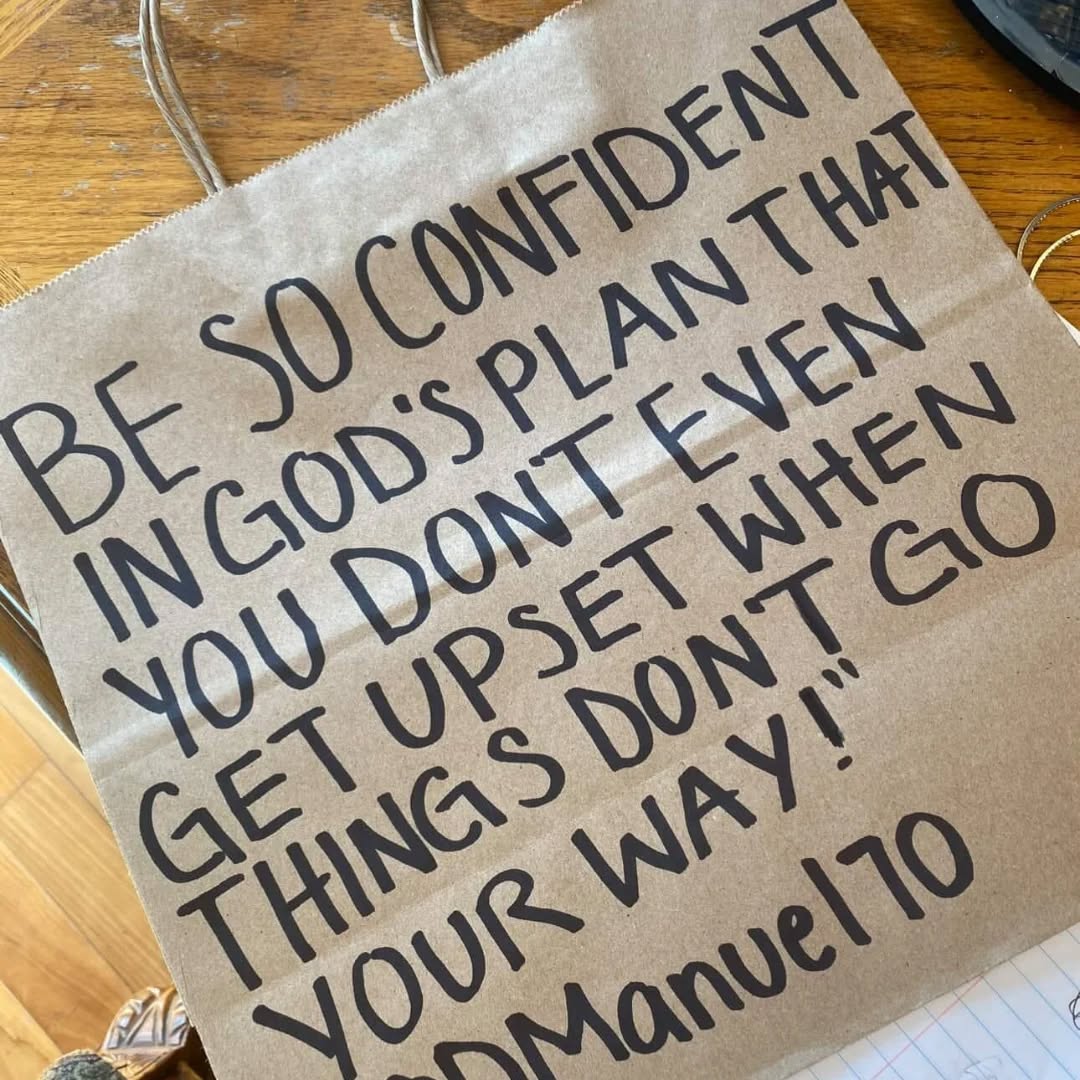 BE SO CONFIDENT
IN GOD'S PLAN THAT
YOU DON'T EVEN
GET UPSET WHEN
THINGS DON'T GO
YOUR WAY!"